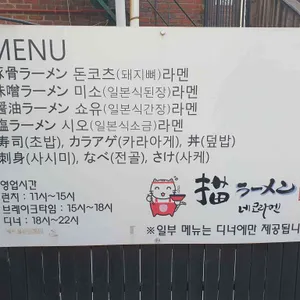 MENU
豚骨ラーメン 돈코츠(돼지뼈)라멘
味噌ラーメン 미소(일본식된장)라멘
醤油ラーメン 쇼유(일본식간장)라멘
塩ラーメン 시오(일본식소금)라멘
寿司(초밥), カラアゲ(카라아게), 丼(덮밥)
刺身(사시미), なべ(전골), さけ(사케)
영업시간
런치 : 11시~15시
브레이크타임 : 15시~18시
디너 : 18시~22시
猫ラーメン
네코라멘
※일부 메뉴는 디너에만 제공됩니